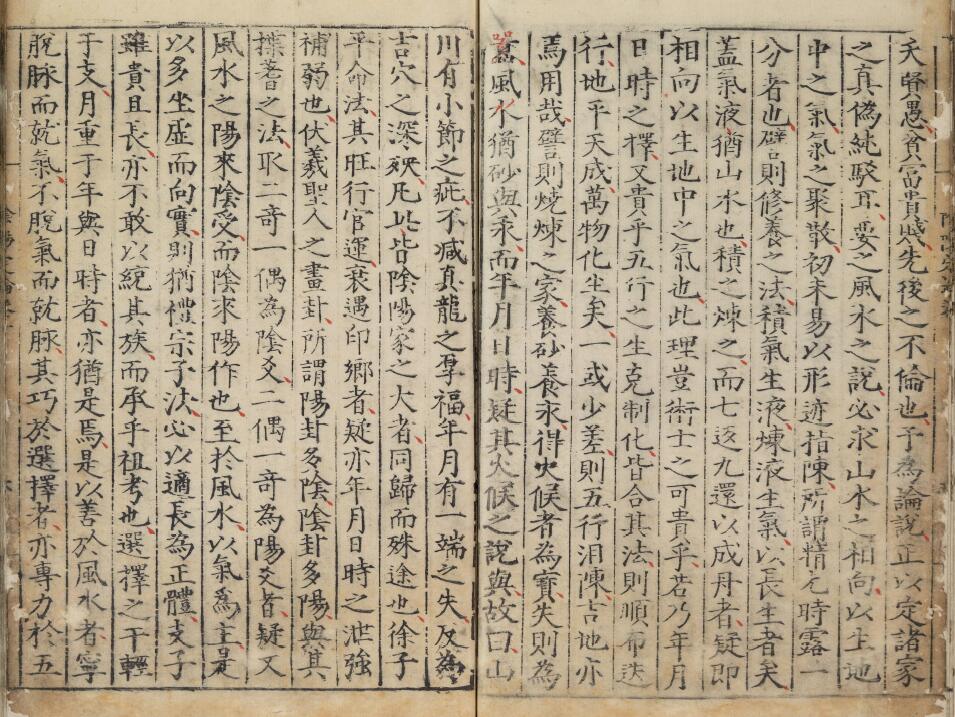 夭賢愚貧富貴賤先後之不倫也予為論說正以定諸家
之真偽純駁耳要之風水之說必求山水之相向以生地
中之氣氣之聚散初未易以形迹指陳所謂精光時露一
分者也譬則修養之法積氣生液煉液生氣以長生者矣
蓋氣液猶山水也積之煉之而七返九還以成丹者疑即
相向以生地中之氣也此理豈術士之可貴乎若乃年月
日時之擇又貴乎五行之生克制化皆合其法則順布迭
行地平天成萬物化生矣一或少差則五行汨陳吉地亦
焉用哉譬則燒煉之家養砂養汞得火候者為寶失則為
風水猶砂與汞而年月日時疑其火候之說與故曰山
川有小節之疵不減真龍之厚福年月有一端之失反為
吉穴之深殃凡此皆陰陽家之大者同歸而殊途也徐子
平命法其旺行官運衰遇印鄉者疑亦年月日時之泄強
補弱也伏羲聖人之畫卦所謂陽卦多陰陰卦多陽與其
揲蓍之法取二奇一偶為陰爻二偶一奇為陽爻者疑又
風水之陽來陰受而陰來陽作也至於風水以氣為主是
以多坐虛而向實則猶禮宗子法必以適長為正體支子
雖貴且長亦不敢以綂其族而承乎祖考也選擇之干輕
于支月重于年與日時者亦猶是焉是以善於風水者寧
脫脉而就氣不脫氣而就脉其巧於選擇者亦專力於五